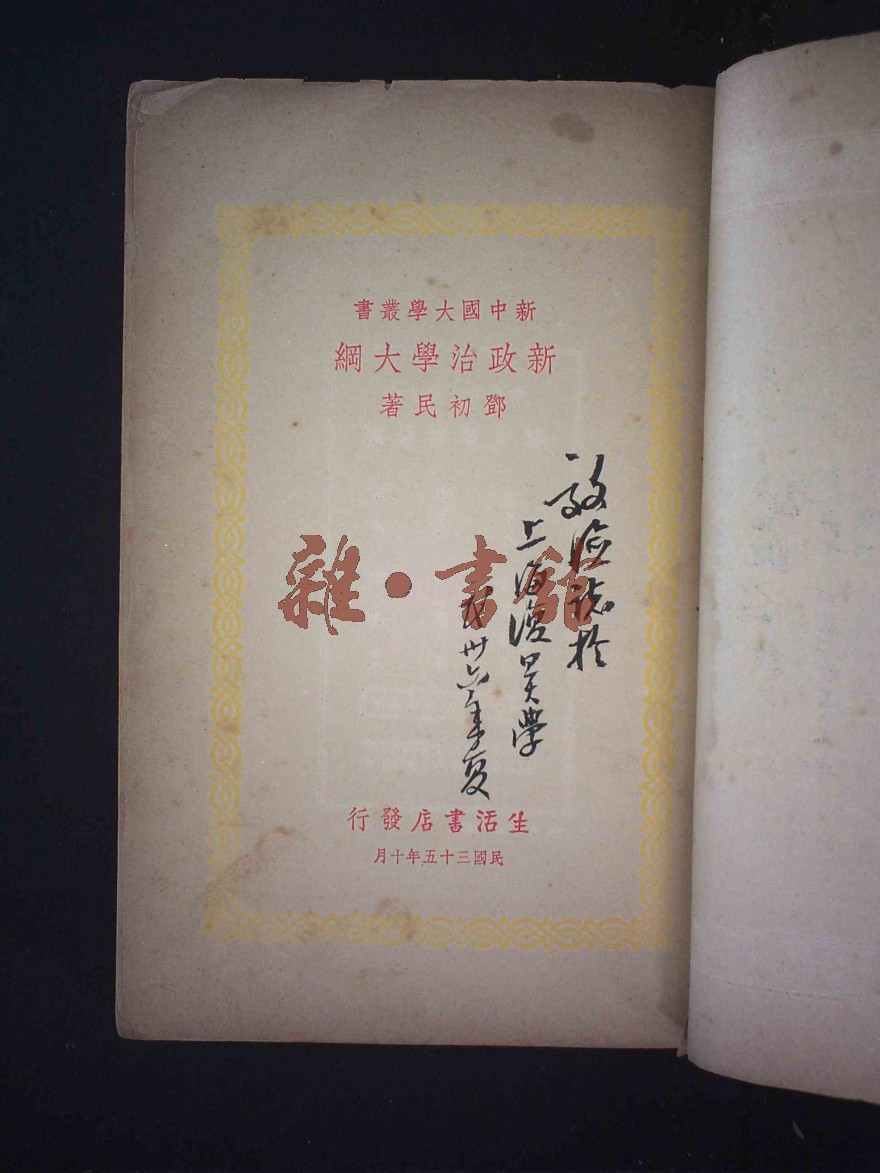 新中國大學叢書
新政治學大綱
鄧初民著
誌於
上海復旦大學
卅六年夏
雜·書館
生活書店發行
民國三十五年十月